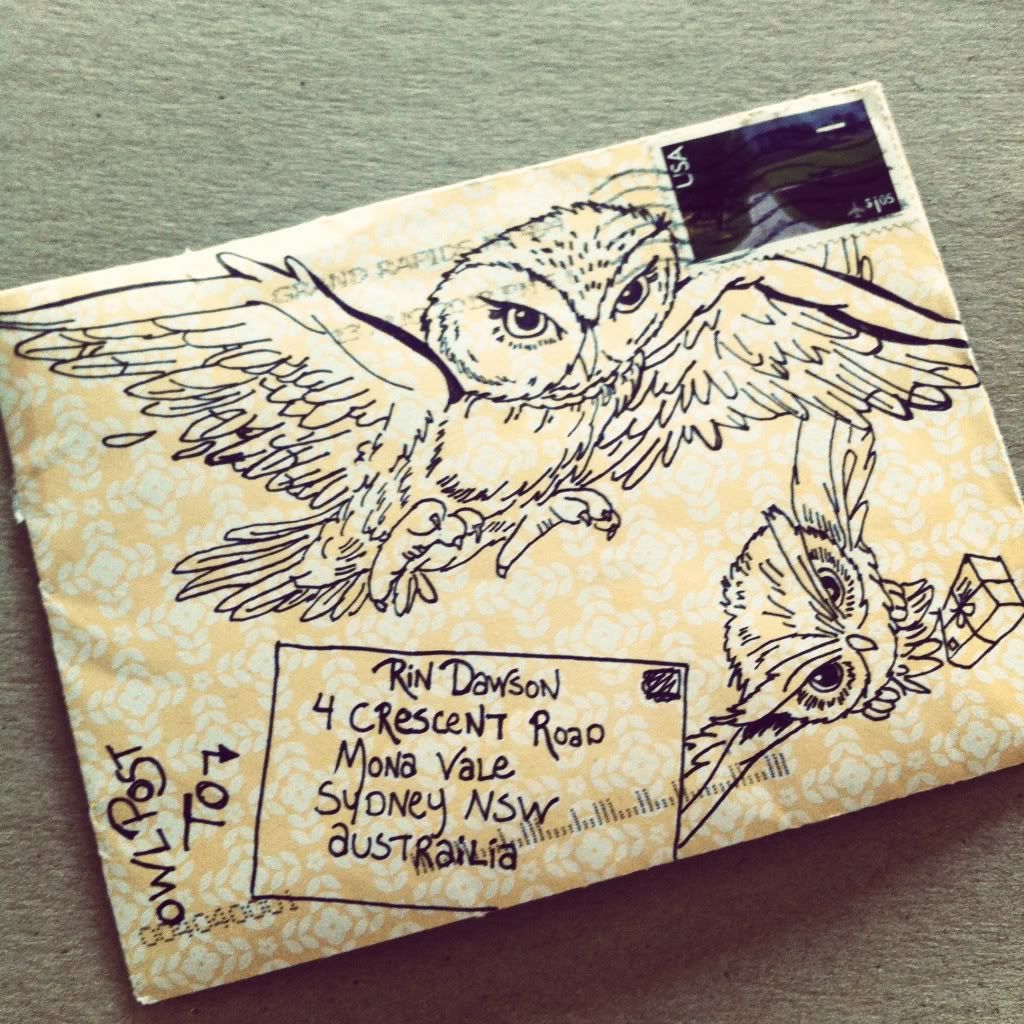 USA
$1.05
GRAND RAPIDS
Rin Dawson
4 Crescent Road
Mona Vale
Sydney NSW
Australia
OWL POST
TO